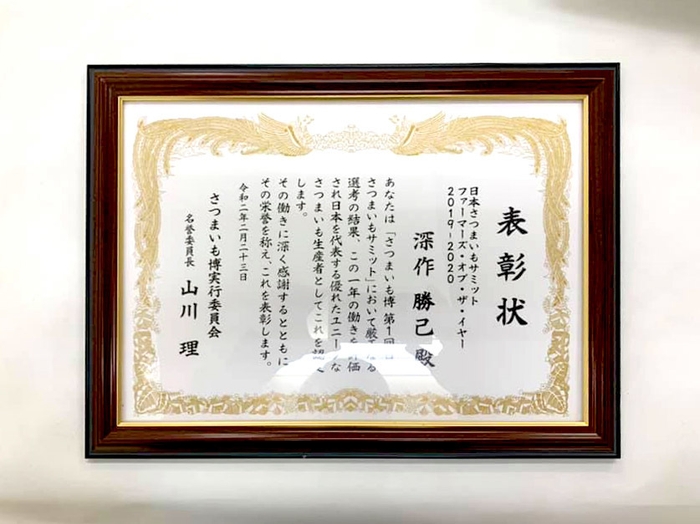 表彰状
日本さつまいもサミット
ファーマーズ・オブ・ザ・イヤー
2019-2020
深作 勝己 殿
あなたは「さつまいも博 第1回
さつまいもサミット」において厳 る
選考の結果、この一年の働きを 価
され日本を代表する優れたユニークな
さつまいも生産者としてこれを認
します。
その働きに深く感謝するとともに
その栄誉を称え、これを表彰します。
令和二年二月二十三日
さつまいも博実行委員会
名誉委員長 山川 理